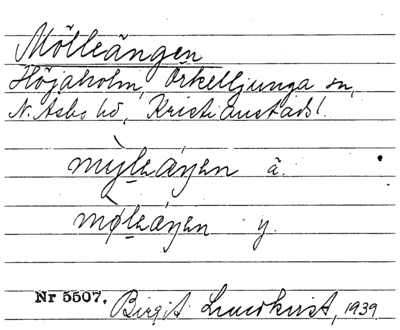 Mölleängen
Höjaholm, Örkelljunga sn,
N. Åsbo hd, Kristianstads l.
mỳleáŋen ä.
mø̀leáŋen y.
Nr 5507. Birgit Lundkvist, 1939.